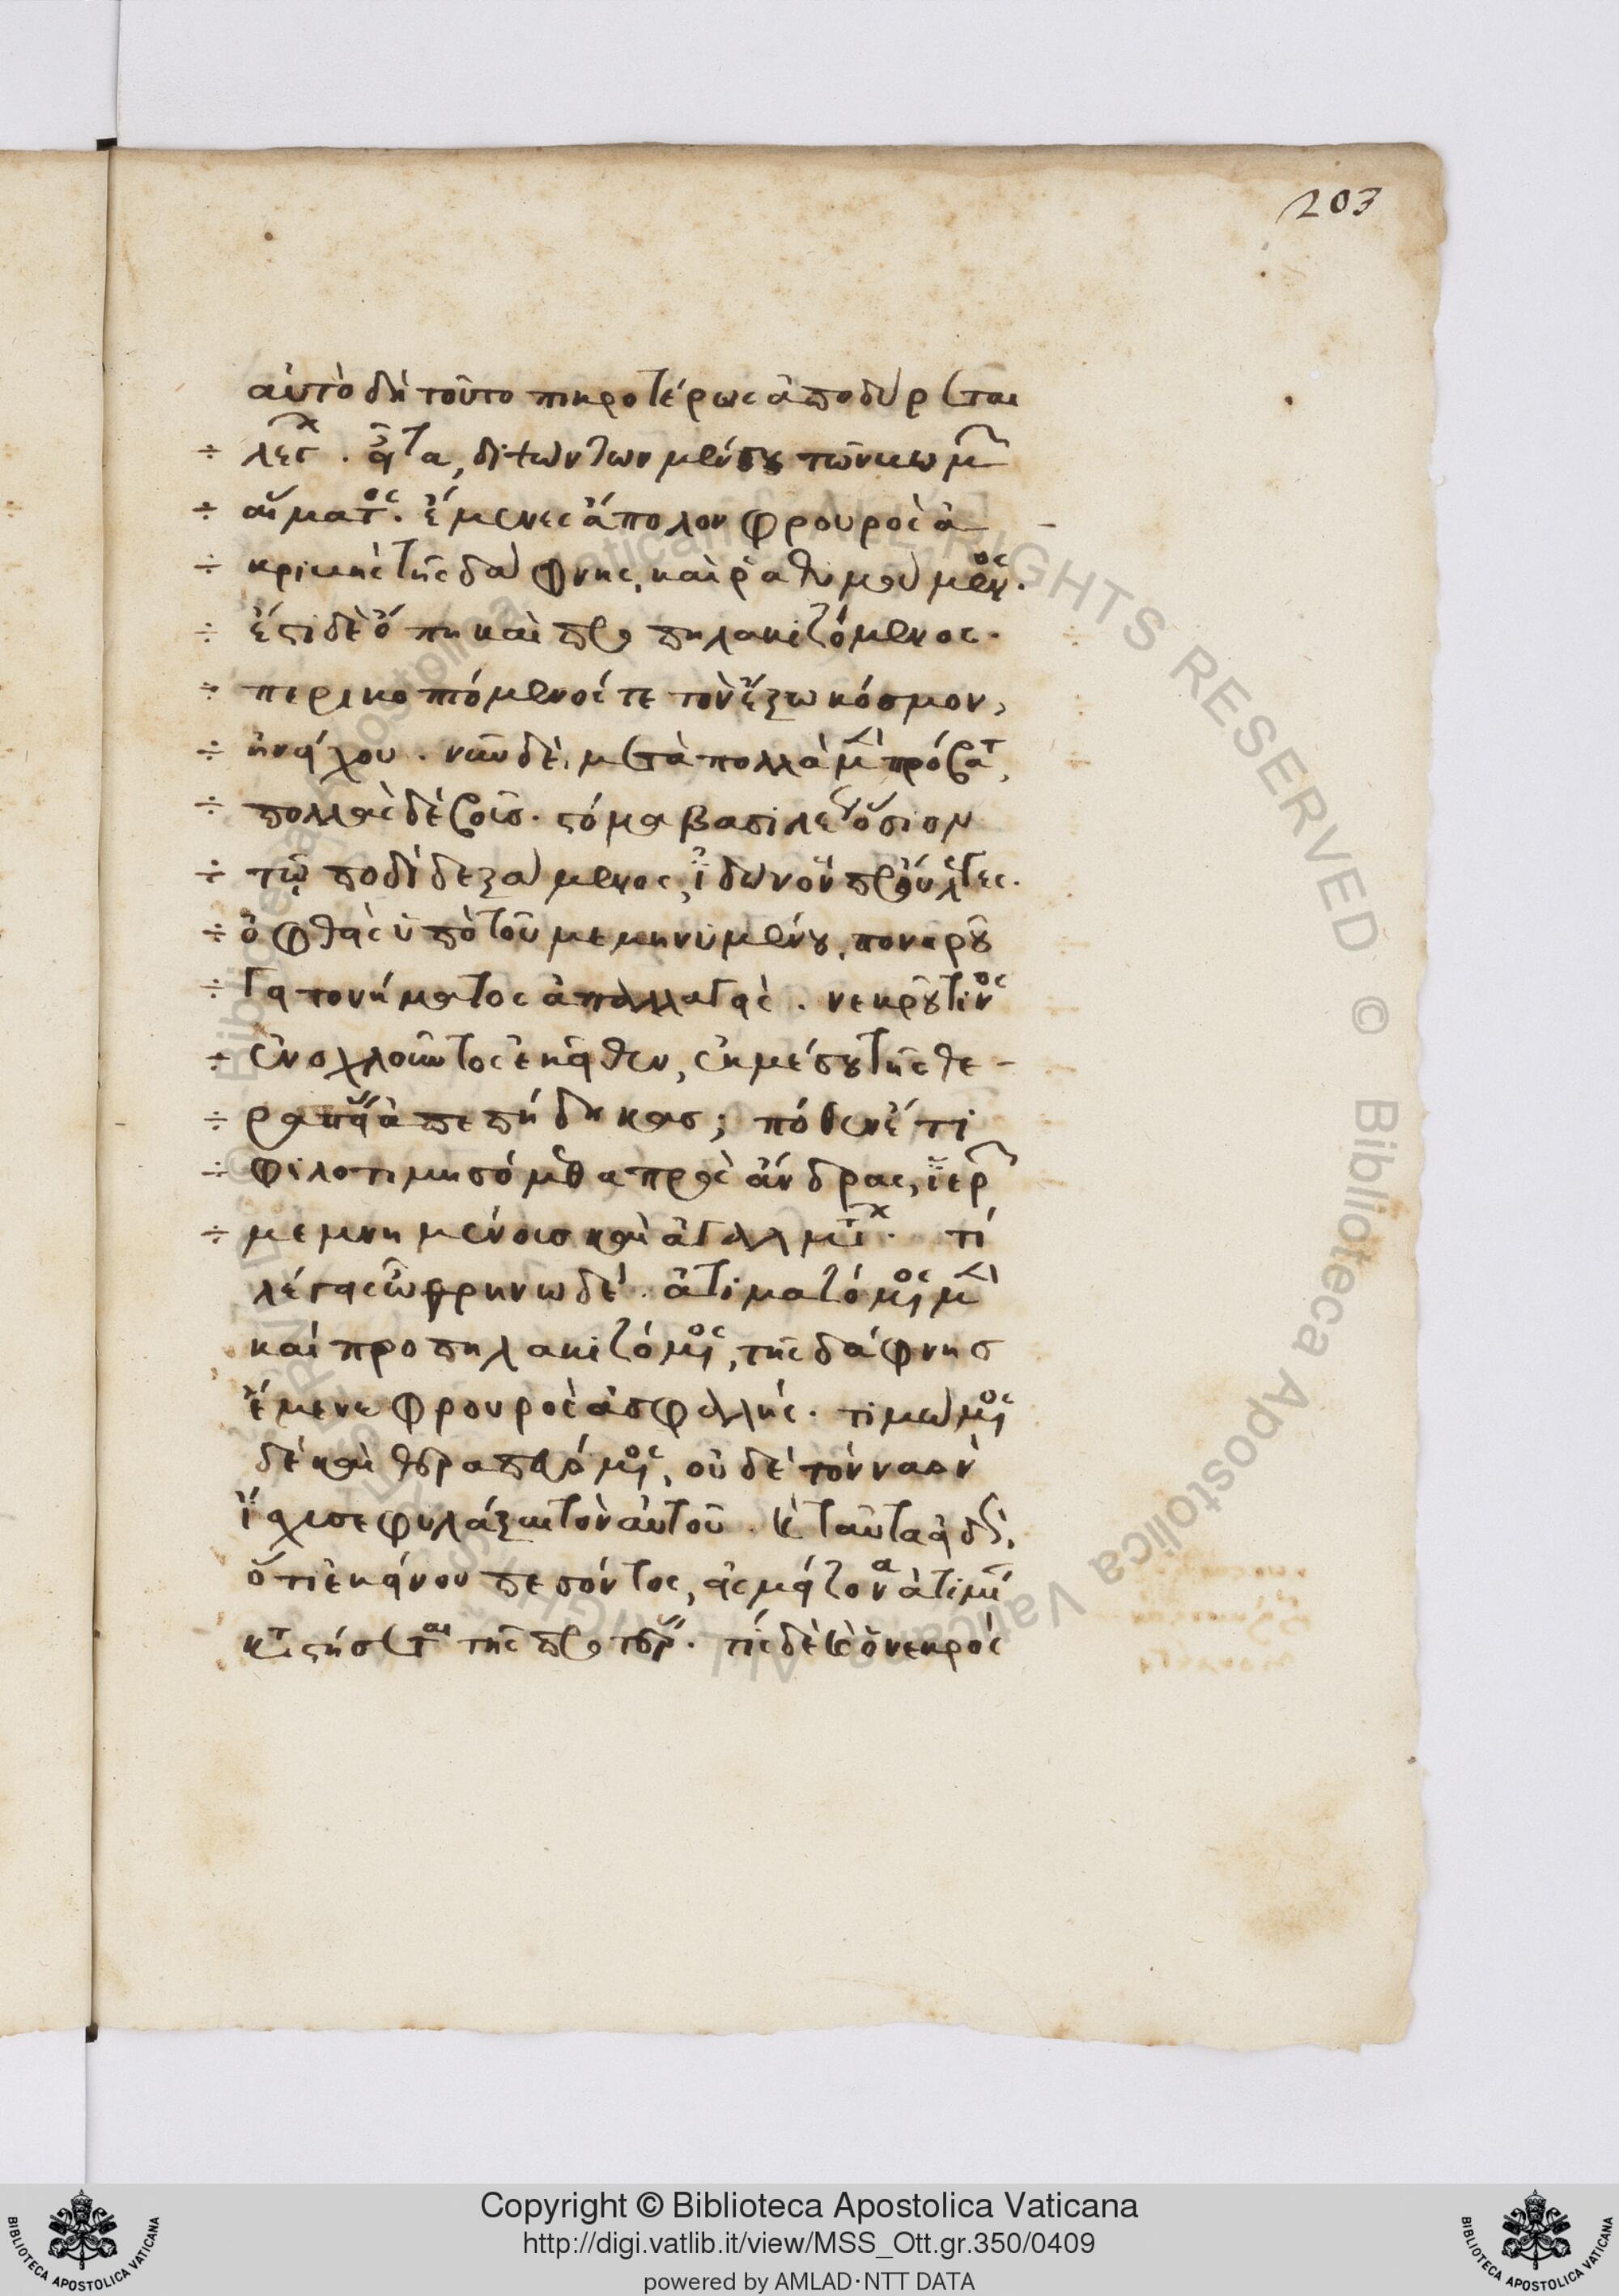 203
αὐτὸ δὴ τοῦτο πικροτέρως ἀποδύρεται
λέγ. εἶτα,
αἵματος. ἔμενες ἄπολον φρουρὸς ἀ
κριβὴς τῆς δάφνης, καὶ ῥαθυμούμενος.
ἔτι δὲ ὅπη καὶ προπηλακιζόμενος.
περικοπτόμενός τε τὸν ἔξω κόσμον,
ἠνείχου. νῦν δὲ, μετὰ πολλὰ μὲν πρόβατ,
πολλοὺς δὲ βοῦς. στόμα βασιλέως ὅσιον
τῷ ποδὶ δεξάμενος, ἰδὼν ὃν προὔλεγες.
ὀφθεὶς ὑπὸ τοῦ μεμηνυμένου, πονηροῦ
γειτονήματος ἀπαλλαγεὶς. νεκροῦ τινος
ἐνοχλοῦντος ἐκεῖθεν, ἐκ μέσου τῆς θε-
ραπείας ἀπεπήδηκας; πόθεν ἔτι
φιλοτιμησόμεθα πρὸς ἄνδρας, ἱερ
μεμνημένους καὶ ἀγαλμάτ. τί
λέγεις ὦ θρηνωδέ. ἀτιμαζόμενος μὲν
καὶ προπηλακιζόμενος, τῆς δάφνης
ἔμενε φρουρὸς ἀσφαλής. τιμώμενος
δὲ καὶ θεραπευόμενος, οὐδὲ τὸν ναὸν
ἴσχυσε φυλάξαι τὸν αὑτοῦ. καὶ ταῦτα εἰδὼς,
ὅτι ἐκείνου πεσόντος, εἰς μείζονα ἀτιμίαν
καταστήσεται τῆς προτέρας. τίς δὲ καὶ ὁ νεκρός
Copyright © Biblioteca Apostolica Vaticana
http://digi.vatlib.it/view/MSS_Ott.gr.350/0409
powered by AMLAD·NTT DATA
BIBLIOTECA APOSTOLICA VATICANA
BIBLIOTECA APOSTOLICA VATICANA